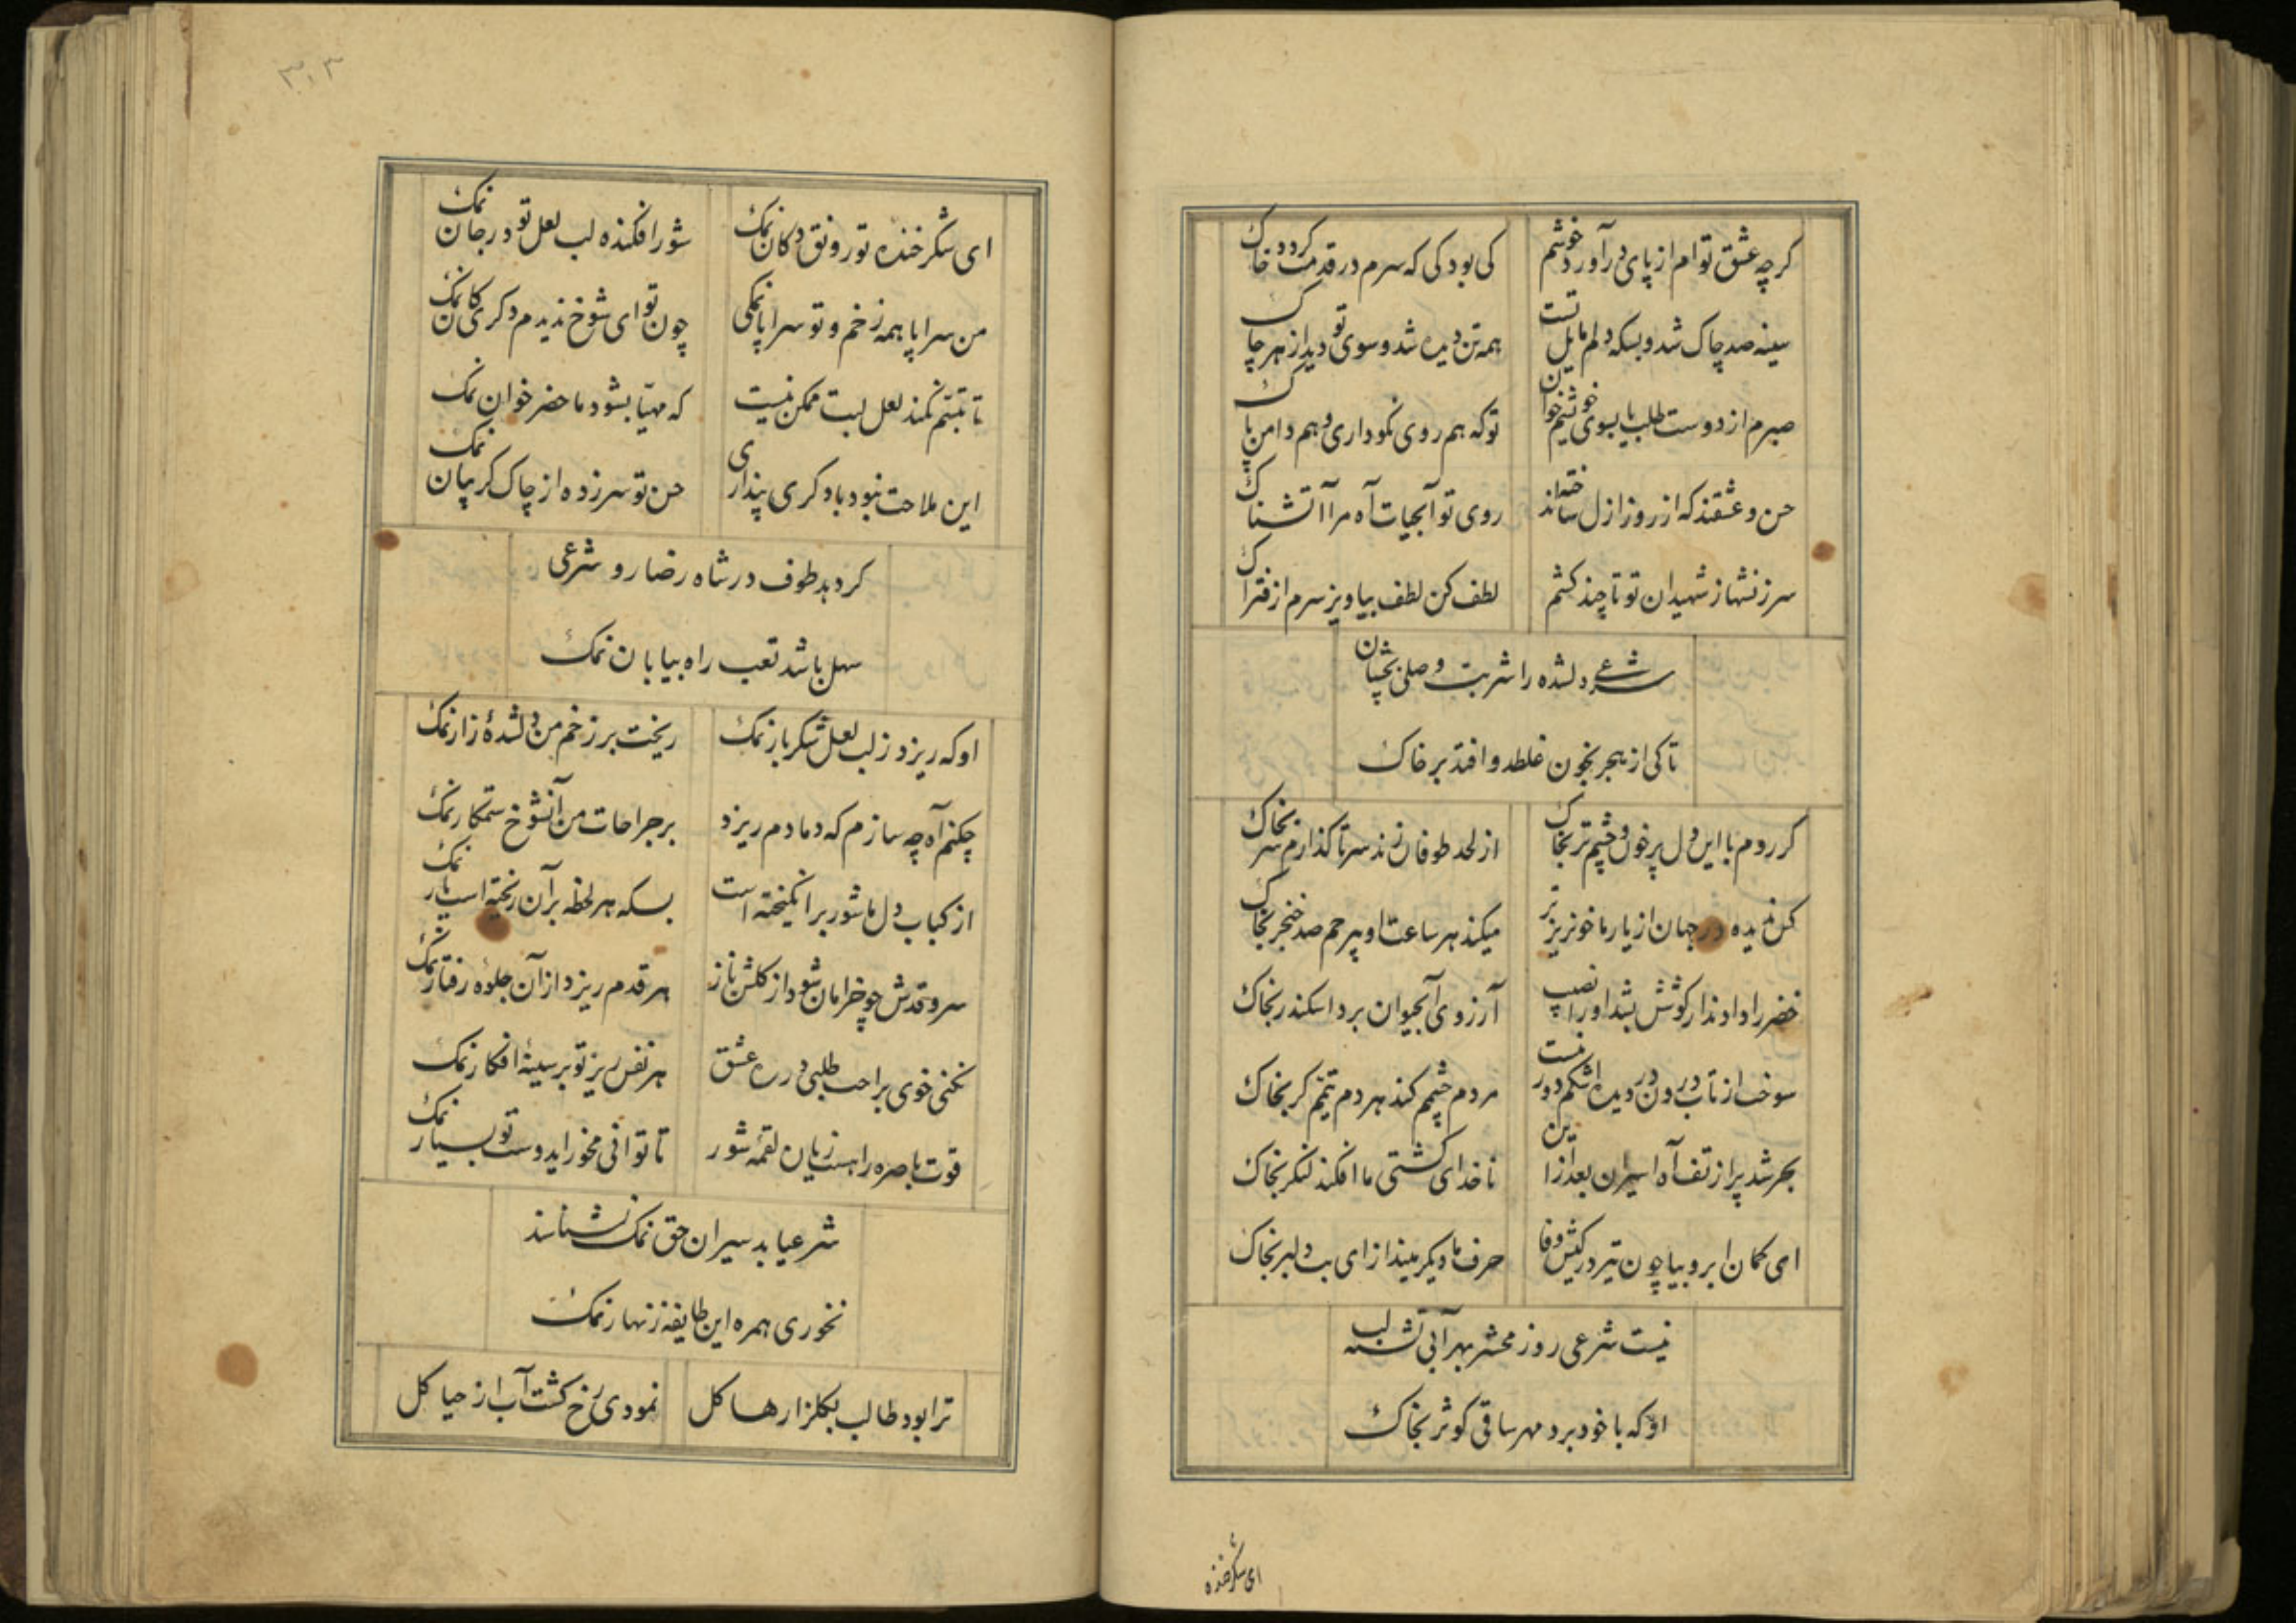 کرچه عشق توام از پای درآورد خوشم
کی بود کی که سرم در قدمت کردد خاک
سینه صد چاک شد و بسکه دلم مایل تست
همه تن دیده شد و سوی تو دید از هر چاک
صبرم از دوست طلب یا بسوی خویشم خوان
تو که هم روی نکو داری و هم دامن پاک
حسن و عشقند که از روز ازل ساخته‌اند
روی تو آبحیات آه مرا آتشناک
سرزنشها ز شهیدان تو تا چند کشم
لطف کن لطف بیاویز سرم از فتراک
شرعی دلشده را شربت وصلی بچشان
تا کی از هجر بخون غلطد و افتد بر خاک
کر روم با این دل پر خون و چشم تر بخاک
از لحد طوفان زند سر تا کذارم سر بخاک
کس ندیده در جهان از یار ما خونریزتر
میکند هر ساعت او بیرحم صد خنجر بخاک
خضر را دادند ار کوشش نشد او را نصیب
آرزوی آبحیوان برد اسکندر بخاک
سوخت از تاب درون در دیده اشکم دور نیست
مردم چشمم کند هر دم تیمّم کر بخاک
بحر شد پر از تف آه اسیران بعد ازاین
ناخدای کشتی ما افکند لنکر بخاک
ای کمان ابرو بیا چون تیر در کیش وفا
حرف ما دیکر مینداز ای بت دلبر بخاک
نیست شرعی روز محشر بهر آبی تشنه لب
او که با خود برد مهر ساقی کوثر بخاک
ای شکر خنده
۳۰۳
ای شکر خنده تو رونق دکان نمک
شور افکنده لب لعل تو در جان نمک
من سراپا همه زخم و تو سراپا نمکی
چون تو ای شوخ ندیدم دکری کان نمک
تا تبسّم نکند لعل لبت ممکن نیست
که مهیّا بشود ماحضر خوان نمک
این ملاحت نبود با دکری پنداری
حسن تو سر زده از چاک کریبان نمک
کر دهد طوف در شاه رضا رو شرعی
سهل باشد تعب راه بیابان نمک
او که ریزد ز لب لعل شکربار نمک
ریخت بر زخم من دلشدهٔ زار نمک
چکنم آه چه سازم که دمادم ریزد
بر جراحات من آنشوخ ستمکار نمک
از کباب دل ما شور برانکیخته است
بسکه هر لحظه برآن ریخته است یار نمک
سرو قدش چو خرامان شود از کلشن ناز
هر قدم ریزد از آن جلوه رفتار نمک
نکنی خوی براحت طلبی در ره عشق
هر نفس ریز تو بر سینهٔ افکار نمک
قوت باصره را هست زیان لقمه شور
تا توانی مخور ایدوست تو بسیار نمک
شرعیا بد سیران حق نمک نشناسند
نخوری همره این طایفه زنهار نمک
ترا بود طالب بکلزارها کل
نمودی رخ کشت آب از حیا کل